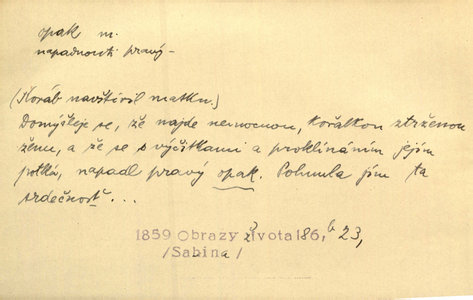 opak m.
napadnouti pravý –
(Koráb navštívil matku.)
Domýšleje se, že najde nemocnou, kořalkou ztrženou
ženu, a že se s výčitkami a proklínáním jejím
potká, napadl pravý opak. Pohnula jím ta
srdečnost ...
1859 Obrazy života 186, b 23,
/Sabina/